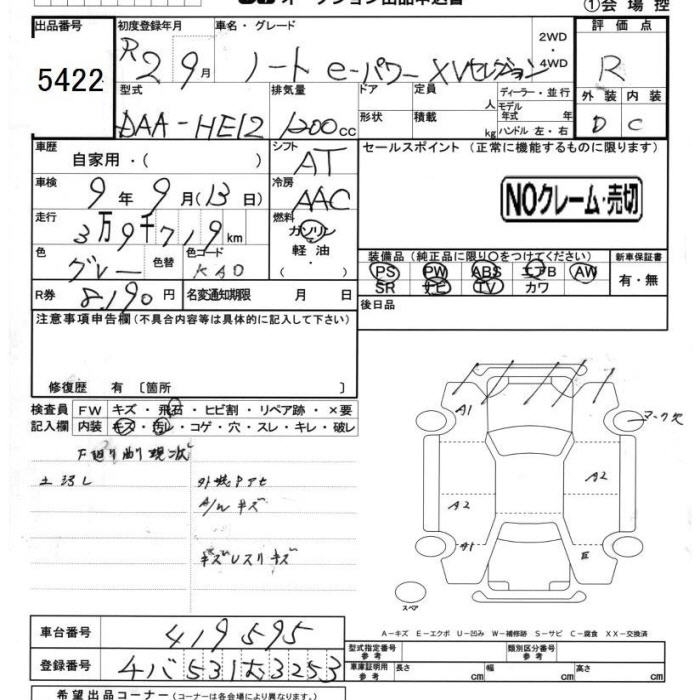 オークション出品申込書
①会場控
出品番号
5422
初度登録年月
R2 9月
車名・グレード
ノート e-パワー XVセレクション
2WD・4WD
評価点
R
外装 内装
D C
型式
DAA-HE12
排気量
1200cc
ドア
形状
定員 人
積載 kg
ディーラー・並行
モデル年式 年
ハンドル 左・右
車歴
自家用・( )
シフト
AT
セールスポイント (正常に機能するものに限ります)
NOクレーム・売切
車検
9年9月(13日)
冷房
AAC
走行
3万9千719km
燃料
ガソリン
軽油
・
色
グレー
色替
色コード
KAD
装備品(純正品に限り○をつけてください)
PS PW ABS エアB AW
SR ナビ TV カワ
新車保証書
有・無
R券
8,190円
名変通知期限 月 日
後日品
注意事項申告欄(不具合内容等は具体的に記入して下さい)
修復歴 有〔箇所 〕
検査員記入欄
FW キズ・飛石・ヒビ割・リペア跡・×要
内装 キズ・汚レ・コゲ・穴・スレ・キレ・破レ
下廻り曲り現状
土汚レ
外装Pアセ
A/Wキズ
キズUスリキズ
A1
マーク欠
A2
A2
A1
スペア
A-キズ E-エクボ U-凹み W-補修跡 S-サビ C-腐食 XX-交換済
車台番号
419595
登録番号
チバ531は3253
型式指定番号 参考
類別区分番号 参考
車庫証明用 参考
長さ cm
幅 cm
高さ cm
希望出品コーナー(コーナーは各会場により異なります。)